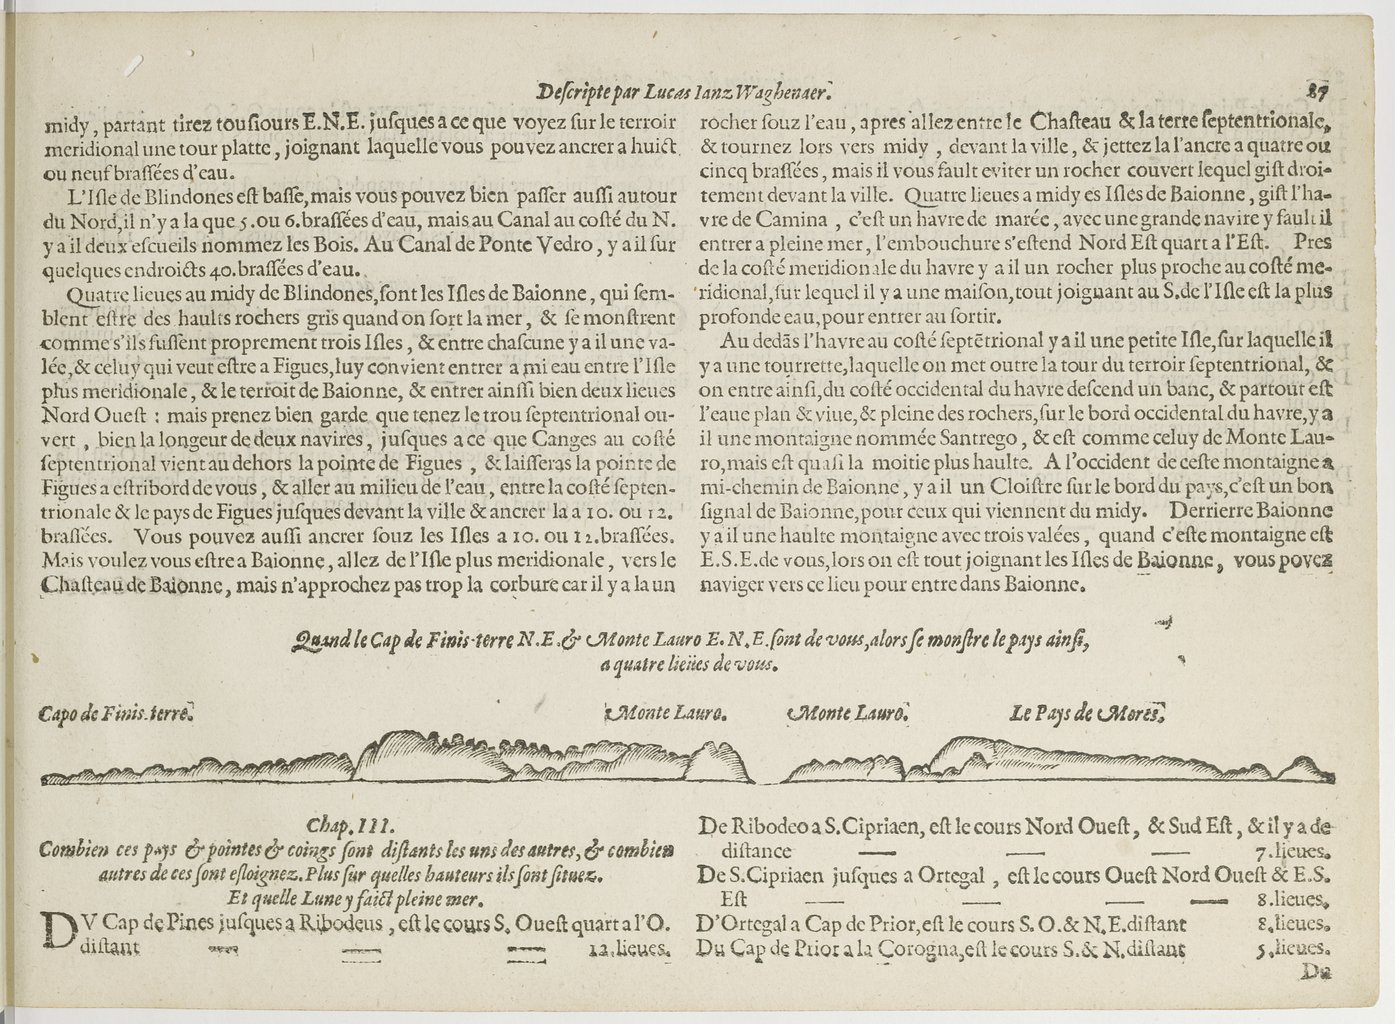 Descripte par Lucas Ianz Waghenaer.
87
midy, partant tirez tousiours E.N.E. jusques a ce que voyez sur le terroir
meridional une tour platte, joignant laquelle vous pouvez ancrer a huict
ou neuf brassées d'eau.
L'Isle de Blindones est basse, mais vous pouvez bien passer aussi autour
du Nord, il n'y a la que 5. ou 6. brassées d'eau, mais au Canal au costé du N.
y a il deux escueils nommez les Bois. Au Canal de Ponte Vedro, y a il sur
quelques endroicts 40. brassées d'eau.
Quatre lieues au midy de Blindones, sont les Isles de Baionne, qui sem-
blent estre des haults rochers gris quand on sort la mer, & se monstrent
comme s'ils fussent proprement trois Isles, & entre chascune y a il une va-
lée, & celuy qui veut estre a Figues, luy convient entrer a mi eau entre l'Isle
plus meridionale, & le terroit de Baionne, & entrer ainssi bien deux lieues
Nord Ouest : mais prenez bien garde que tenez le trou septentrional ou-
vert, bien la longeur de deux navires, jusques a ce que Canges au costé
septentrional vient au dehors la pointe de Figues, & laisseras la pointe de
Figues a estribord de vous, & aller au milieu de l'eau, entre la costé septen-
trionale & le pays de Figues jusques devant la ville & ancrer la a 10. ou 12.
brassées. Vous pouvez aussi ancrer souz les Isles a 10. ou 12. brassées.
Mais voulez vous estre a Baionne, allez de l'Isle plus meridionale, vers le
Chasteau de Baionne, mais n'approchez pas trop la corbure car il y a la un
rocher souz l'eau, apres allez entre le Chasteau & la terre septentrionale,
& tournez lors vers midy, devant la ville, & jettez la l'ancre a quatre ou
cincq brassées, mais il vous fault eviter un rocher couvert lequel gist droi-
tement devant la ville. Quatre lieues a midy es Isles de Baionne, gist l'ha-
vre de Camina, c'est un havre de marée, avec une grande navire y fault il
entrer a pleine mer, l'embouchure s'estend Nord Est quart a l'Est. Pres
de la costé meridionale du havre y a il un rocher plus proche au costé me-
ridional, sur lequel il y a une maison, tout joignant au S. de l'Isle est la plus
profonde eau, pour entrer au sortir.
Au dedãs l'havre au costé septẽtrional y a il une petite Isle, sur laquelle il
y a une tourrette, laquelle on met outre la tour du terroir septentrional, &
on entre ainsi, du costé occidental du havre descend un banc, & partout est
l'eaue plan & viue, & pleine des rochers, sur le bord occidental du havre, y a
il une montaigne nommée Santrego, & est comme celuy de Monte Lau-
ro, mais est quasi la moitie plus haulte. A l'occident de ceste montaigne a
mi-chemin de Baionne, y a il un Cloistre sur le bord du pays, c'est un bon
signal de Baionne, pour ceux qui viennent du midy. Derrierre Baionne
y a il une haulte montaigne avec trois valées, quand c'este montaigne est
E.S.E. de vous, lors on est tout joignant les Isles de Baionne, vous povez
naviger vers ce lieu pour entre dans Baionne.
Quand le Cap de Finis-terre N.E. & Monte Lauro E.N.E. sont de vous, alors se monstre le pays ainsi,
a quatre lieües de vous.
Capo de Finis-terre.
Monte Lauro.
Monte Lauro.
Le Pays de Mores.
Chap. III.
Combien ces pays & pointes & coings sont distants les uns des autres, & combien
autres de ces sont esloignez. Plus sur quelles hauteurs ils sont situez.
Et quelle Lune y faict pleine mer.
DV Cap de Pines jusques a Ribodeus, est le cours S. Ouest quart a l'O.
distant 12. lieues.
De Ribodeo a S. Cipriaen, est le cours Nord Ouest, & Sud Est, & il y a de
distance 7. lieues.
De S. Cipriaen jusques a Ortegal, est le cours Ouest Nord Ouest & E.S.
Est 8. lieues.
D'Ortegal a Cap de Prior, est le cours S.O. & N.E. distant 8. lieues.
Du Cap de Prior a la Corogna, est le cours S. & N. distant 5. lieues.
Du